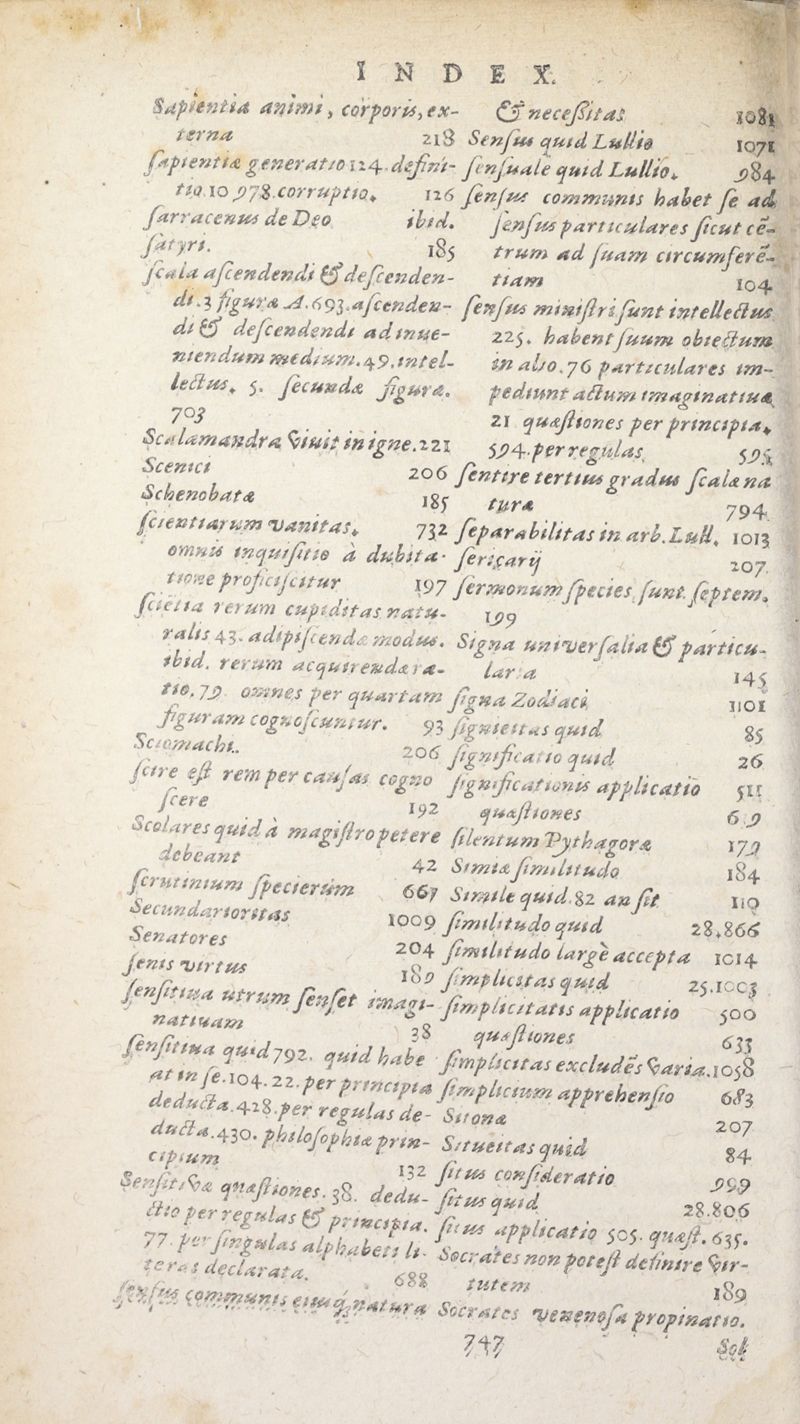 INDEX.
Sapientia animi, corporis, ex-
terna 218
sapientiæ generatio 124. defini-
tio. 10 978. corruptio. 126
sarracenus de Deo ibid.
satyri. 185
scala ascendendi & descenden-
di. 3 figura A. 693. ascenden-
di & descendendi ad inue-
niendum medium. 49. intel-
lectus. 5. secundæ figuræ.
703
Scalamandra viuit in igne. 221
Scenici 206
Schenobatæ 185
scientiarum vanitas. 732
omnis inquisitio à dubita-
tione proficiscitur 197
sciētia rerum cupiditas natu-
ralis 43. adipiscendæ modus.
ibid. rerum acquirendæ ra-
tio. 79. omnes per quartam
figuram cognoscuntur. 93
Sciomachi. 206
scire est rem per causas cogno
scere 192
Scolares quid à magistro petere
debeant 42
scrutinium specierum 667
Secundarioritas 1009
Senatores 204
senis virtus 189
sensitiua utrum senset imagi-
natiuam 38
sensitiua quid 792. quid habe
at in se. 104. 22. per principia
deducta. 428. per regulas de-
ducta. 430. philosophiæ prin-
cipium 132
Sensitivæ quæstiones. 38. dedu-
ctio per regulas & principia.
77. per singulas alphabeti li-
teras declarata. 688
sensus communis eiusq; natura
747
& necessitas 1081
Sensus quid Lullio 1071
sensuale quid Lullio. 984
sensus communis habet se ad
sensus particulares sicut cē-
trum ad suam circumferē-
tiam 104
sensus ministri sunt intellectus
225. habent suum obiectum
in alio. 76 particulares im-
pediunt actum imaginatiuæ
21 quæstiones per principia.
594. per regulas 595
sentire tertius gradus scalæ na
turæ 794
separabilitas in arb. Lull. 1013
sericarij 207
sermonum species sunt septem.
199
Signa universalia & particu-
laria 145
signa Zodiaci 1101
signieitas quid 85
significatio quid 26
significationis applicatio 511
quæstiones 619
silentum Pythagoræ 179
Simiæ similitudo 184
Simile quid. 82 an sit 110
similitudo quid 28.866
similitudo largè accepta 1014
simplicitas quid 25.1003
simplicitatis applicatio 500
quæstiones 633
simplicitas excludēs varia. 1058
simplicium apprehensio 683
Sitona 207
Situeitas quid 84
situs consideratio 999
situs quid 28.806
situs applicatio 505. quæst. 635.
Socrates non potest definire vir-
tutem 189
Socrates venenosa propinatio.
Sol